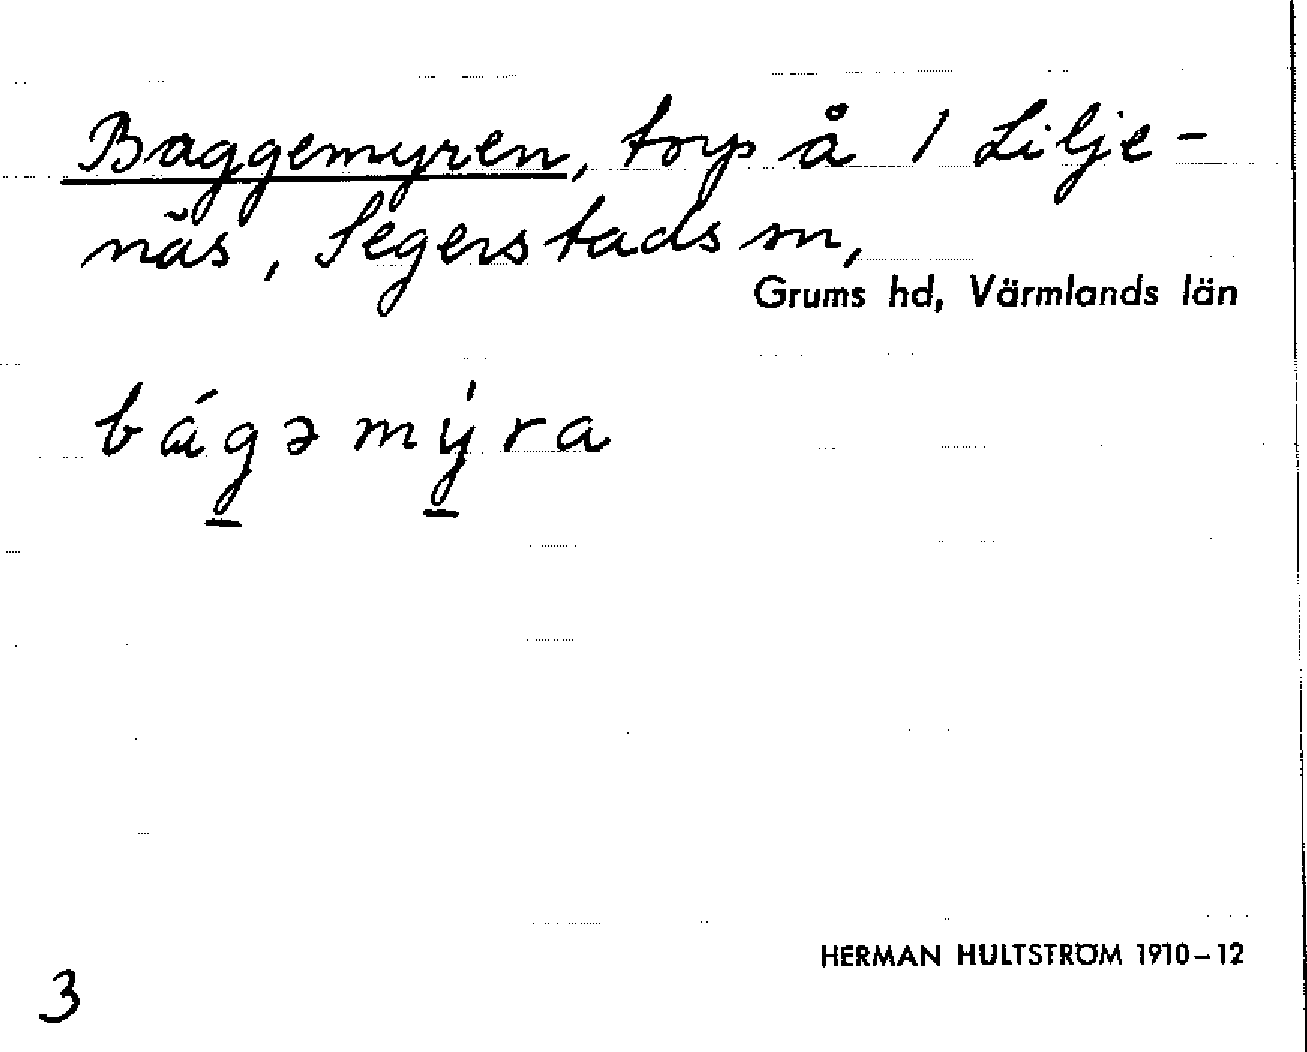 Baggemyren, torp å 1 Lilje-
näs, Segerstads sn,
Grums hd, Värmlands län
bág̲əmý̲ra
HERMAN HULTSTRÖM 1910-12
3